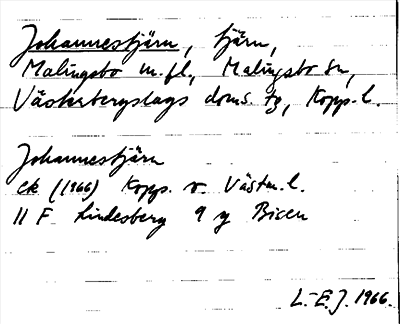 Johannestjärn, tjärn,
Malingsbo m.fl., Malingsbo sn,
Västerbergslags doms. tg, Kopp. l.
Johannestjärn
ek (1966) Kopp. o. Västm. l.
11 F Lindesberg 9 g Bicen
L.-E.J. 1966.